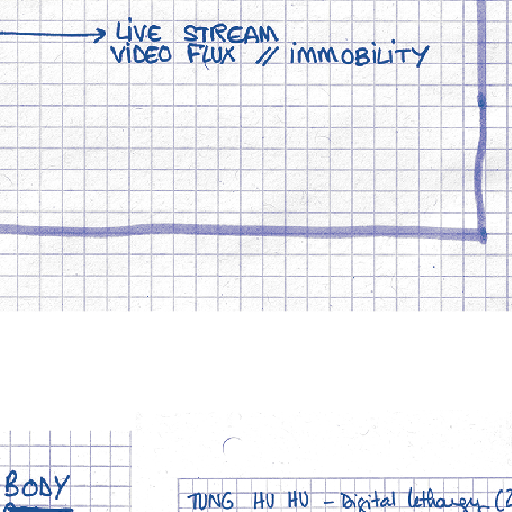 → LiVE STREAM
ViDEO FLUX // iMMOBiLiTY
BODY
TUNG HU HU - Digital lethargy (2